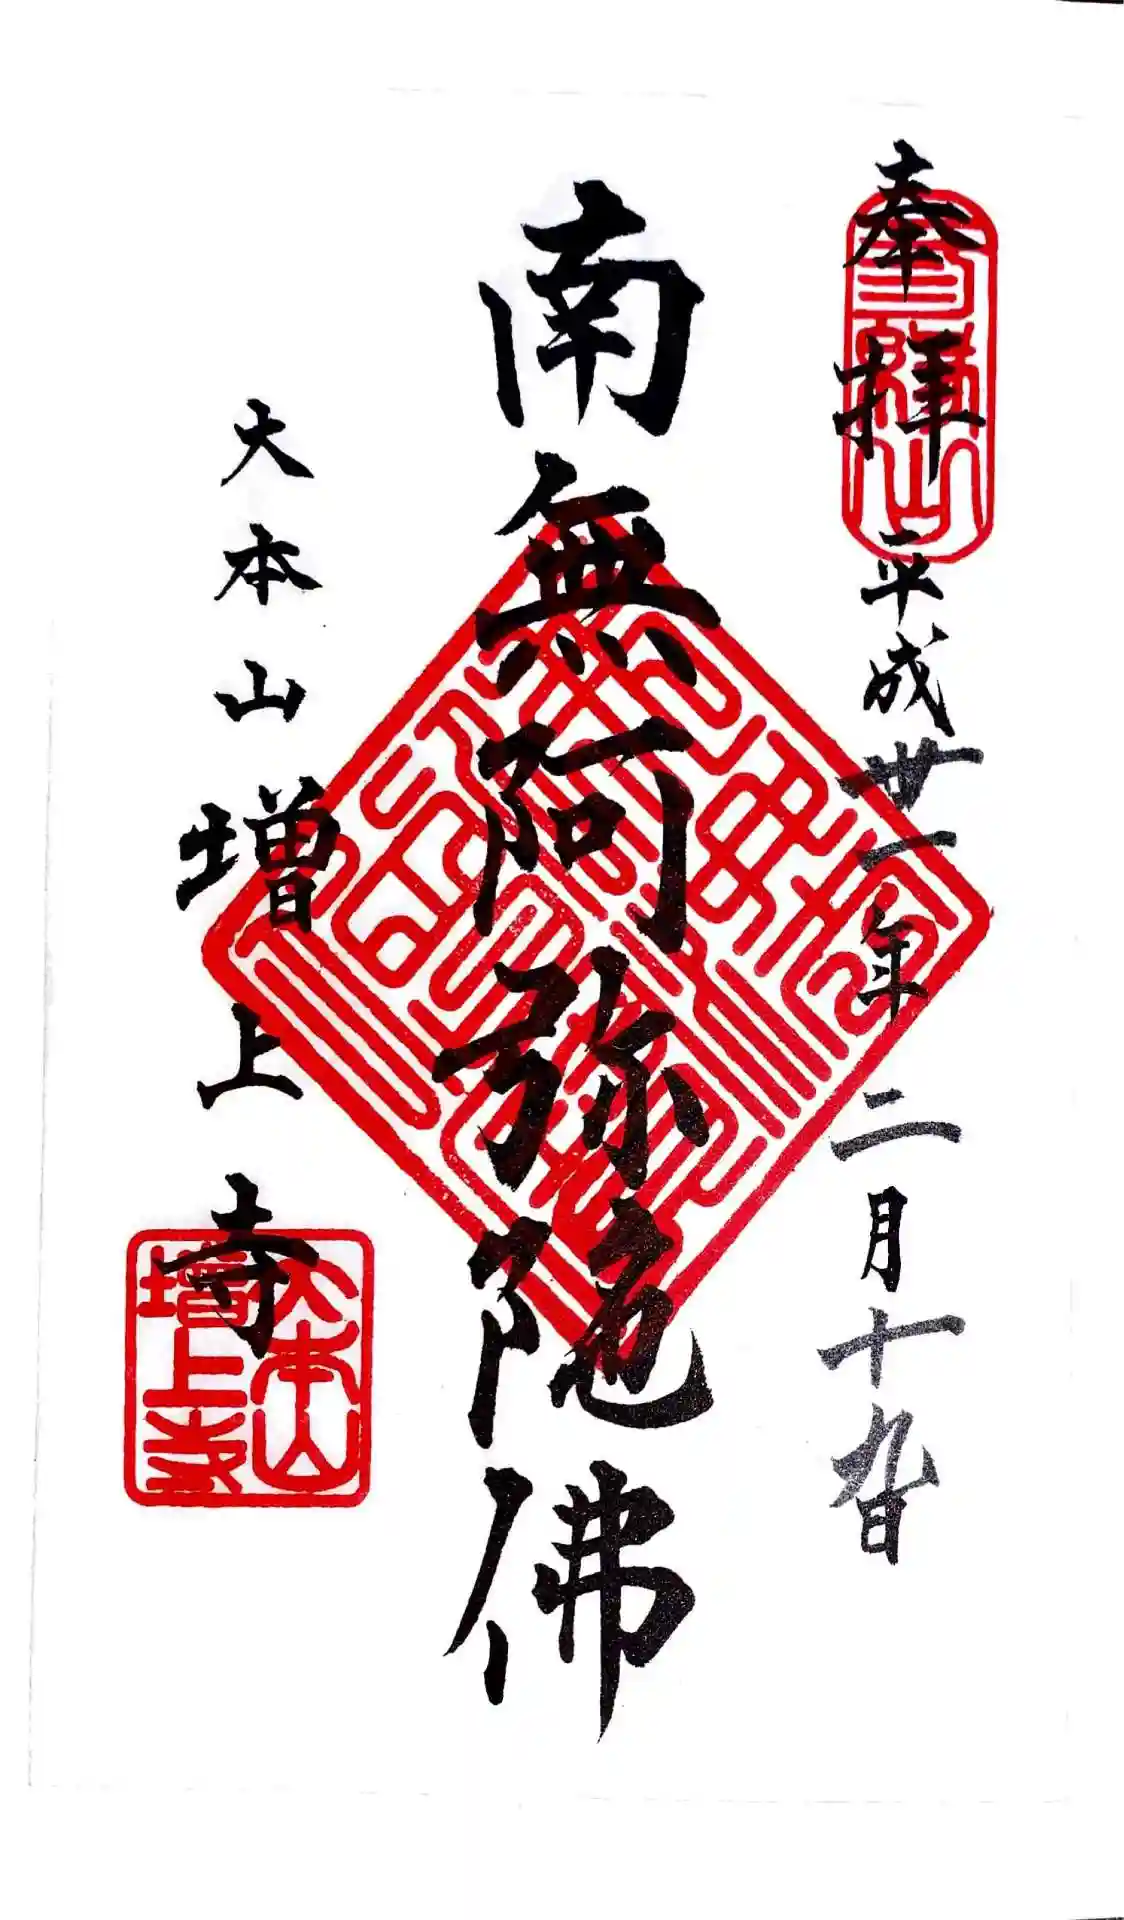 奉拝
平成卅一年二月十九日
南無阿弥陀佛
大本山増上寺
三縁山
大本山
増上寺